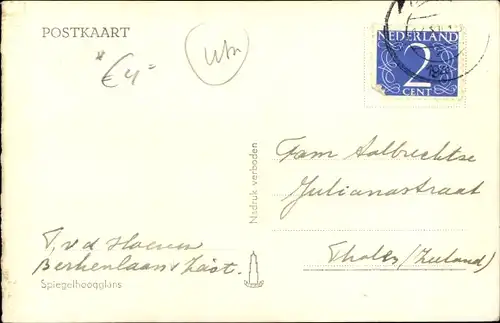 POSTKAART
*€4=
Utr
NEDERLAND
2
CENT
Nadruk verboden
Fam Aalbrechtse
Julianastraat
Tholen (Zeeland)
T. v. d. Hoeven
Berkenlaan Zeist.
Spiegelhoogglans